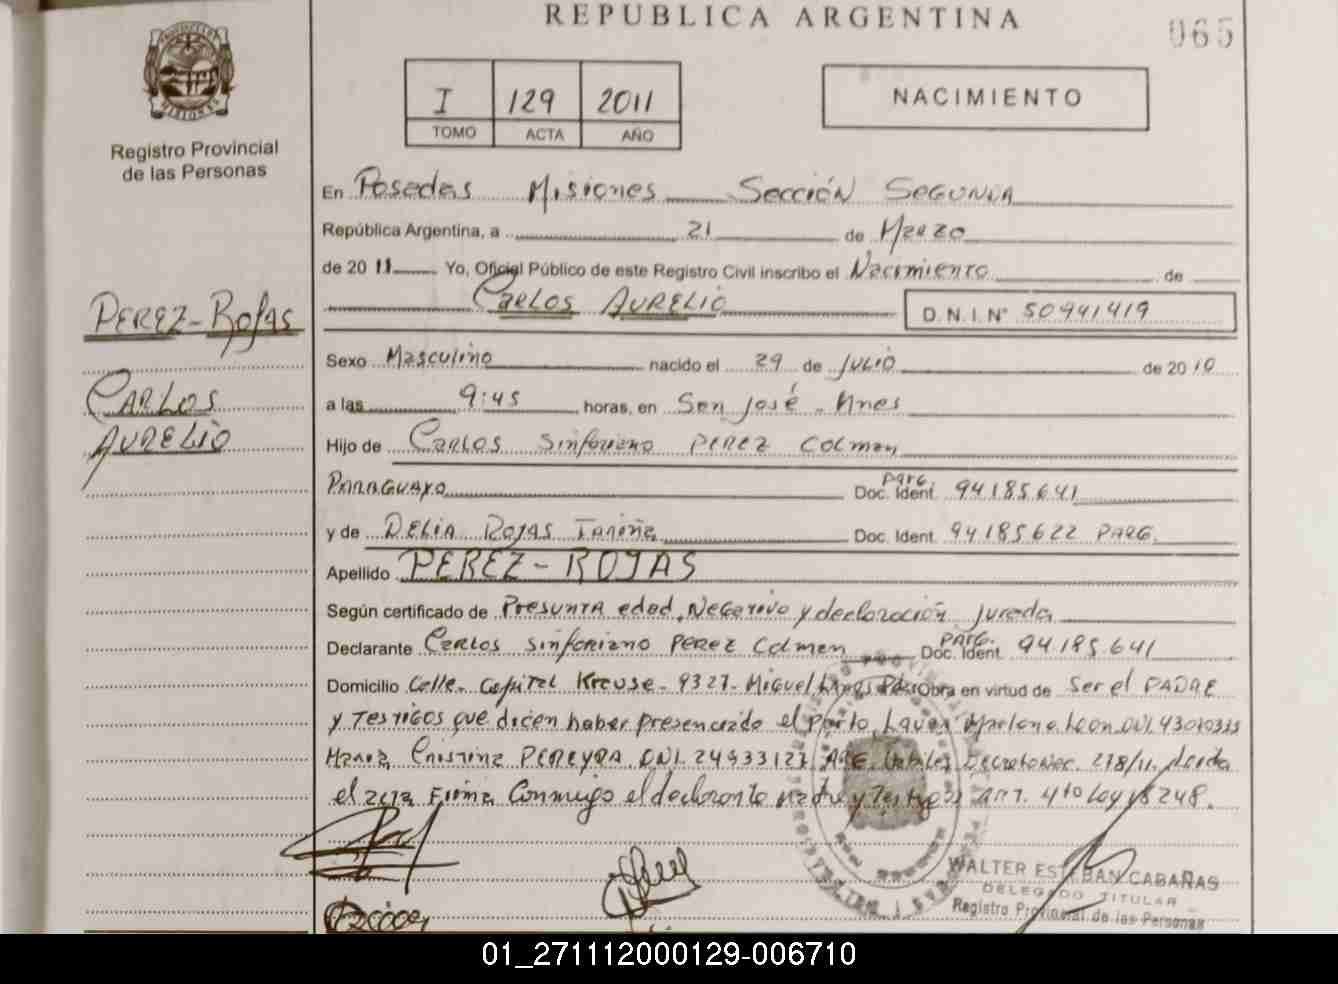 REPUBLICA ARGENTINA
065
Registro Provincial
de las Personas
I 129 2011
TOMO ACTA AÑO
NACIMIENTO
En Posadas Misiones Sección Segunda
República Argentina, a 21 de Marzo
de 2011 Yo, Oficial Público de este Registro Civil inscribo el Nacimiento de
Carlos Aurelio D.N.I. N° 50941419
PEREZ-Rojas
CARLOS
AURELIO
Sexo Masculino nacido el 29 de JULIO de 2010
a las 9:45 horas, en San José - Mnes
Hijo de Carlos Sinforiano PEREZ COLMAN
PARAGUAYO Doc. Ident. PARG. 94.185.641
y de DELIA ROJAS Doc. Ident. 94.185.622 PARG.
Apellido PEREZ-ROJAS
Según certificado de Presunta edad, Negativo y declaración Jurada
Declarante Carlos Sinforiano PEREZ Colman Doc. Ident. PARG. 94.185.641
Domicilio Calle- Capital Krause- 9327- Miguel Obra en virtud de Ser el PADRE
y Testigos que dicen haber presenciado el parto DNI 43010333
María Cristina PEREYRA DNI 24933127 278/11. Leida
el acta Firma Conmigo el declarante padre y Testigos ART. Ley 18248.
WALTER ESTEBAN CABAÑAS
DELEGADO TITULAR
Registro Provincial de las Personas
01_271112000129-006710